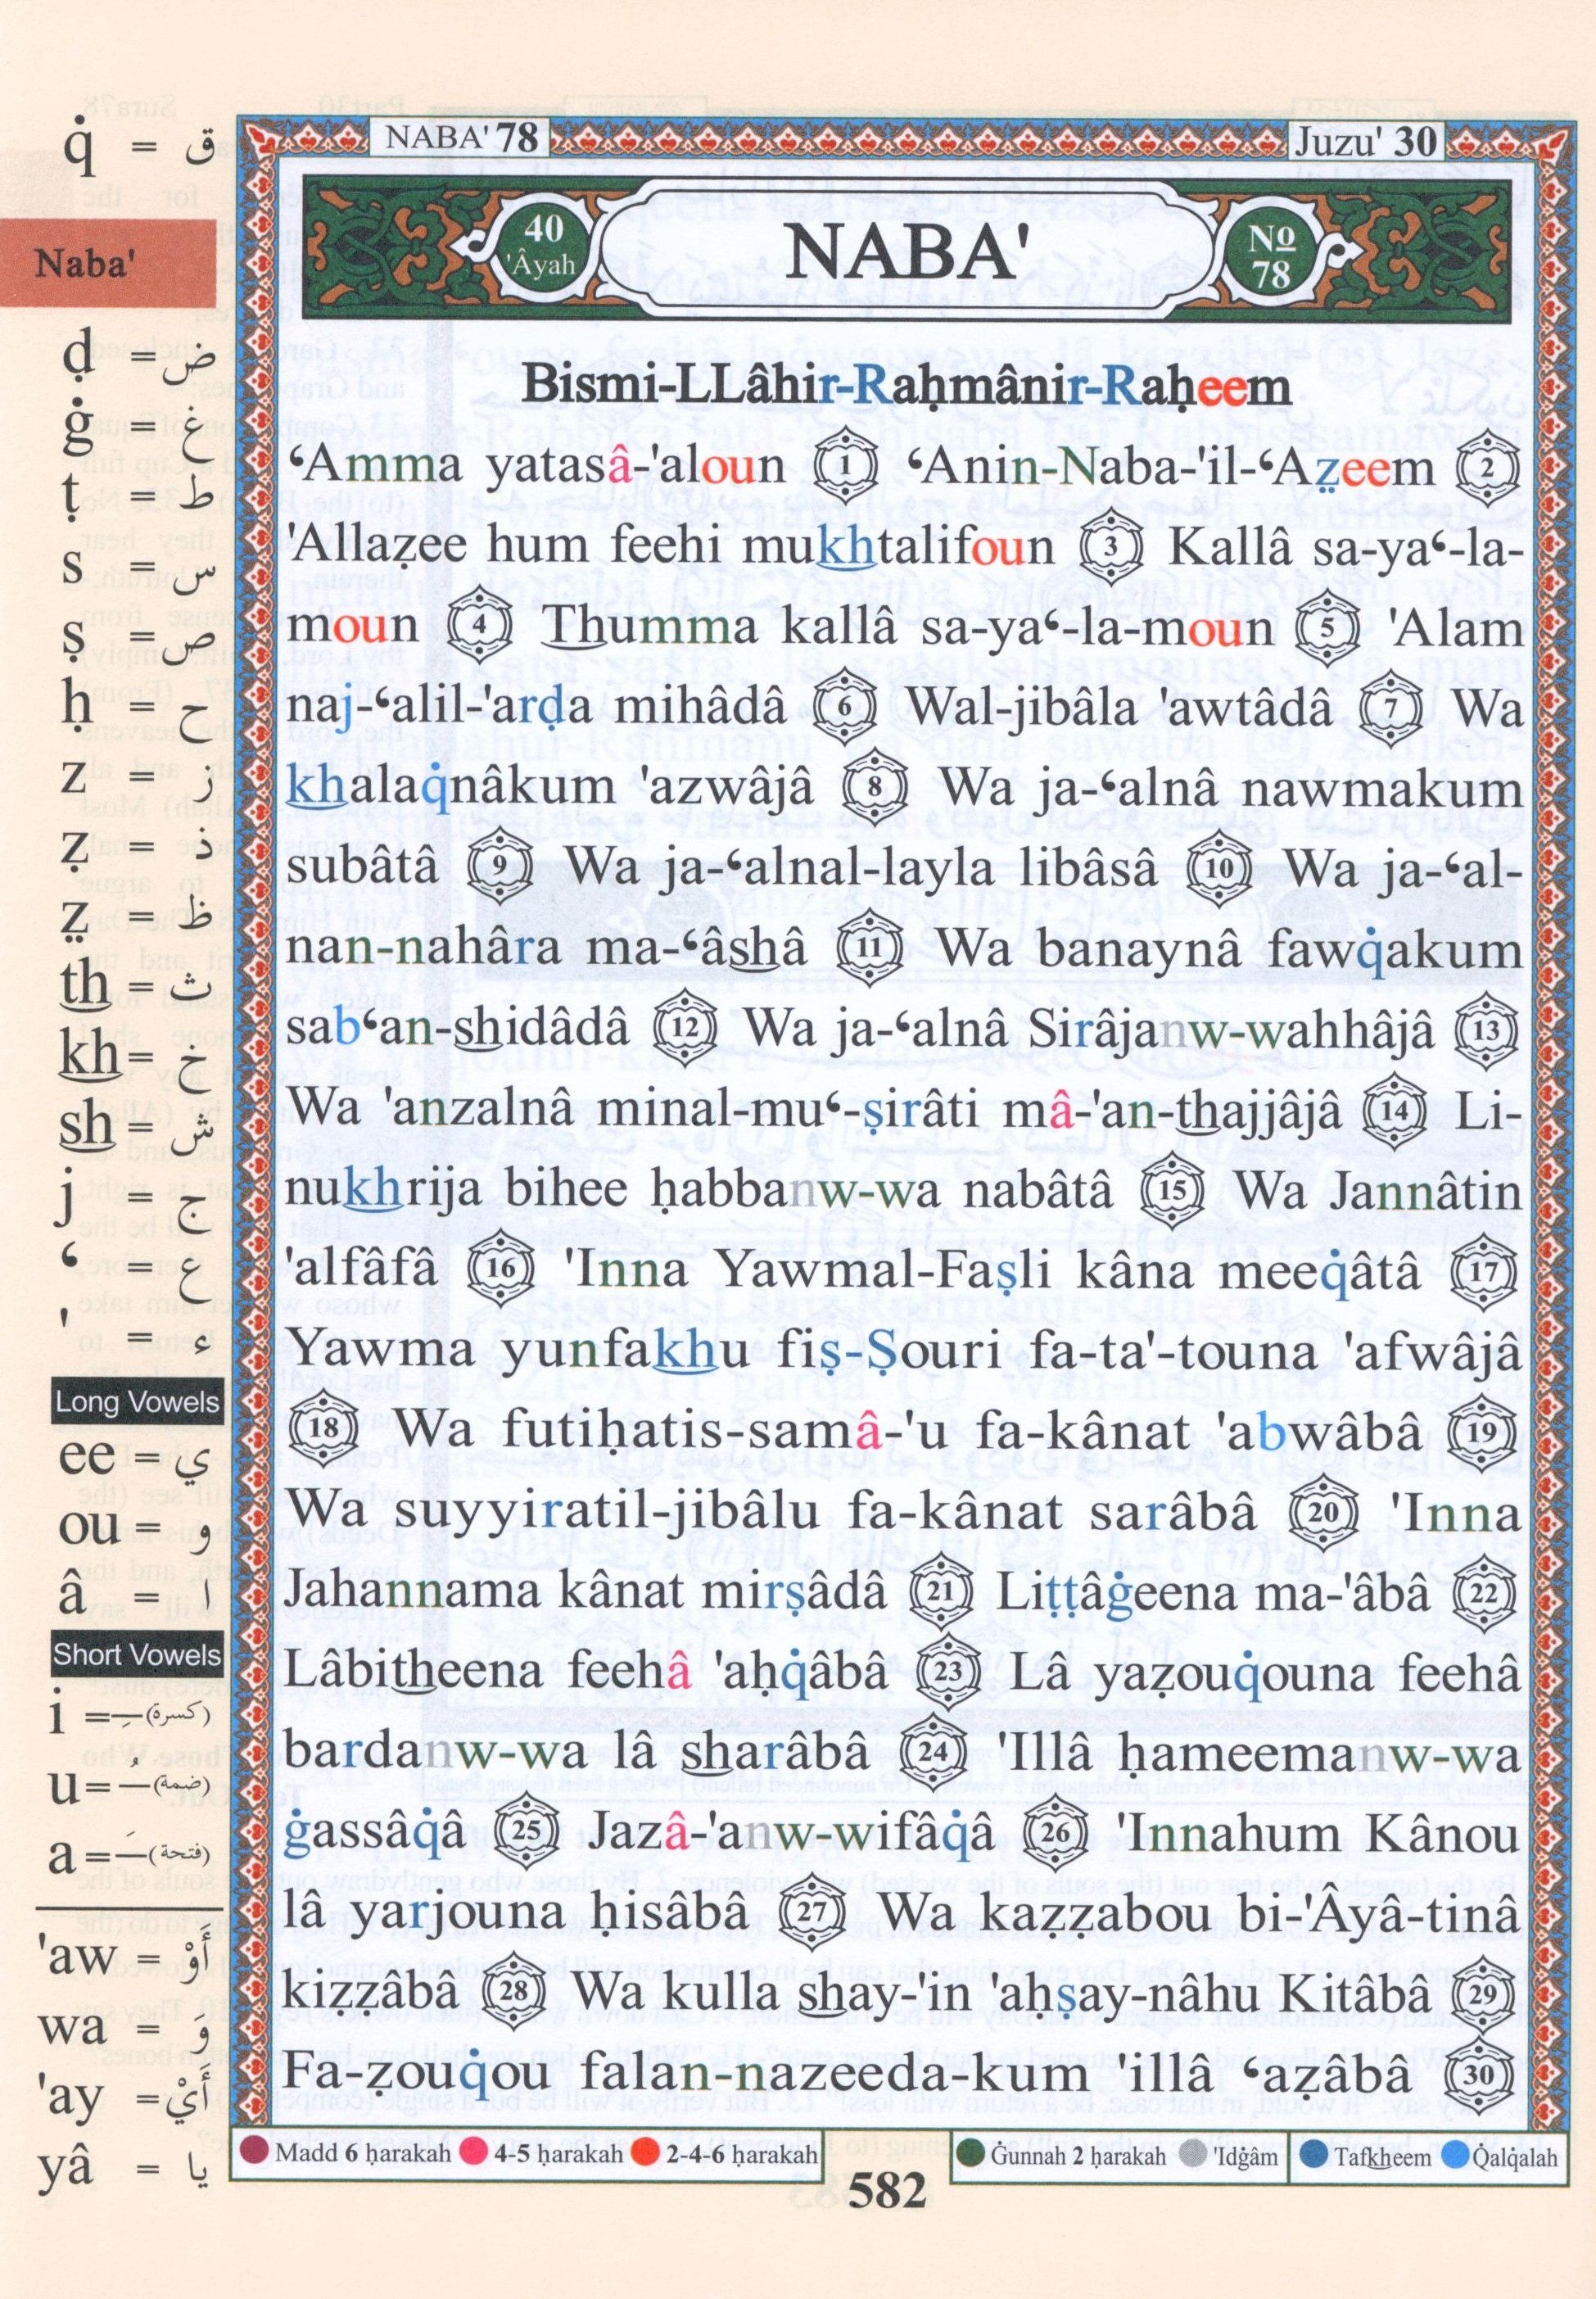 NABA' 78
Juzu' 30
40
'Âyah
NABA'
Nº
78
Bismi-LLâhir-Raḥmânir-Raḥeem
‘Amma yatasâ-'aloun 1 ‘Anin-Naba-'il-‘Aẓeem 2
'Allaẓee hum feehi mukhtalifoun 3 Kallâ sa-ya‘-la-
moun 4 Thumma kallâ sa-ya‘-la-moun 5 'Alam
naj-‘alil-'arḍa mihâdâ 6 Wal-jibâla 'awtâdâ 7 Wa
khalaq̇nâkum 'azwâjâ 8 Wa ja-‘alnâ nawmakum
subâtâ 9 Wa ja-‘alnal-layla libâsâ 10 Wa ja-‘al-
nan-nahâra ma-‘âshâ 11 Wa banaynâ fawq̇akum
sab‘an-shidâdâ 12 Wa ja-‘alnâ Sirâjanw-wahhâjâ 13
Wa 'anzalnâ minal-mu‘-ṣirâti mâ-'an-thajjâjâ 14 Li-
nukhrija bihee ḥabbanw-wa nabâtâ 15 Wa Jannâtin
'alfâfâ 16 'Inna Yawmal-Faṣli kâna meeq̇âtâ 17
Yawma yunfakhu fiṣ-Ṣouri fa-ta'-touna 'afwâjâ
18 Wa futiḥatis-samâ-'u fa-kânat 'abwâbâ 19
Wa suyyiratil-jibâlu fa-kânat sarâbâ 20 'Inna
Jahannama kânat mirṣâdâ 21 Liṭṭâġeena ma-'âbâ 22
Lâbitheena feehâ 'aḥq̇âbâ 23 Lâ yaẓouq̇ouna feehâ
bardanw-wa lâ sharâbâ 24 'Illâ ḥameemanw-wa
ġassâq̇â 25 Jazâ-'anw-wifâq̇â 26 'Innahum Kânou
lâ yarjouna ḥisâbâ 27 Wa kaẓẓabou bi-'Âyâ-tinâ
kiẓẓâbâ 28 Wa kulla shay-'in 'aḥṣay-nâhu Kitâbâ 29
Fa-ẓouq̇ou falan-nazeeda-kum 'illâ ‘aẓâbâ 30
Madd 6 ḥarakah 4-5 ḥarakah 2-4-6 ḥarakah
Ġunnah 2 ḥarakah 'Idġâm
Tafkheem Q̇alq̇alah
582
q̇ = ق
Naba'
ḍ = ض
ġ = غ
ṭ = ط
s = س
ṣ = ص
ḥ = ح
z = ز
ẓ = ذ
z̤ = ظ
th = ث
kh = خ
sh = ش
j = ج
‘ = ع
' = ء
Long Vowels
ee = ي
ou = و
â = ا
Short Vowels
i = ـِ (كسرة)
u = ـُ (ضمة)
a = ـَ (فتحة)
'aw = أَوْ
wa = وَ
'ay = أَيْ
yâ = يا